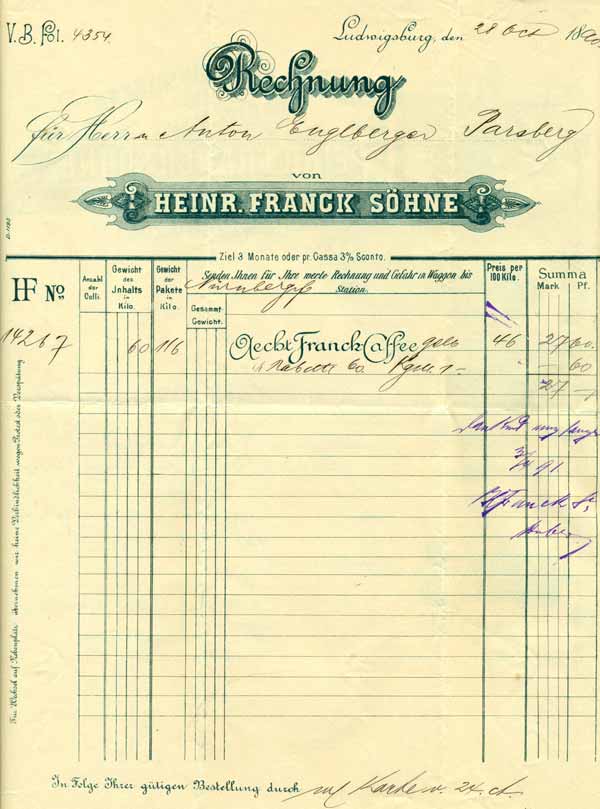 V. B. Fol. 4354.
Ludwigsburg, den 28 Oct 1890.
Rechnung
Für Herrn Anton Englberger Parsberg
von
HEINR. FRANCK SÖHNE
D. 1190
Ziel 3 Monate oder pr. Cassa 3% Sconto.
HF No.
Anzahl der Colli.
Gewicht des Jnhalts in Kilo.
Gewicht der Pakete in Kilo.
Gesammt-Gewicht.
Senden Ihnen für Ihre werte Rechnung und Gefahr in Waggon bis
Nürnberg Station.
Preis per 100 Kilo.
Summa
Mark Pf.
14267 60 116 Aecht Franck-Caffee gelb 46 27 60.
Rabatt 60 1 - 60
27 -
91.
Franck
Für Verlust auf Nebenplätze übernehmen wir keine Verbindlichkeit wegen Protest oder Verspätung
In Folge Ihrer gütigen Bestellung durch Karte v. 24. ct.